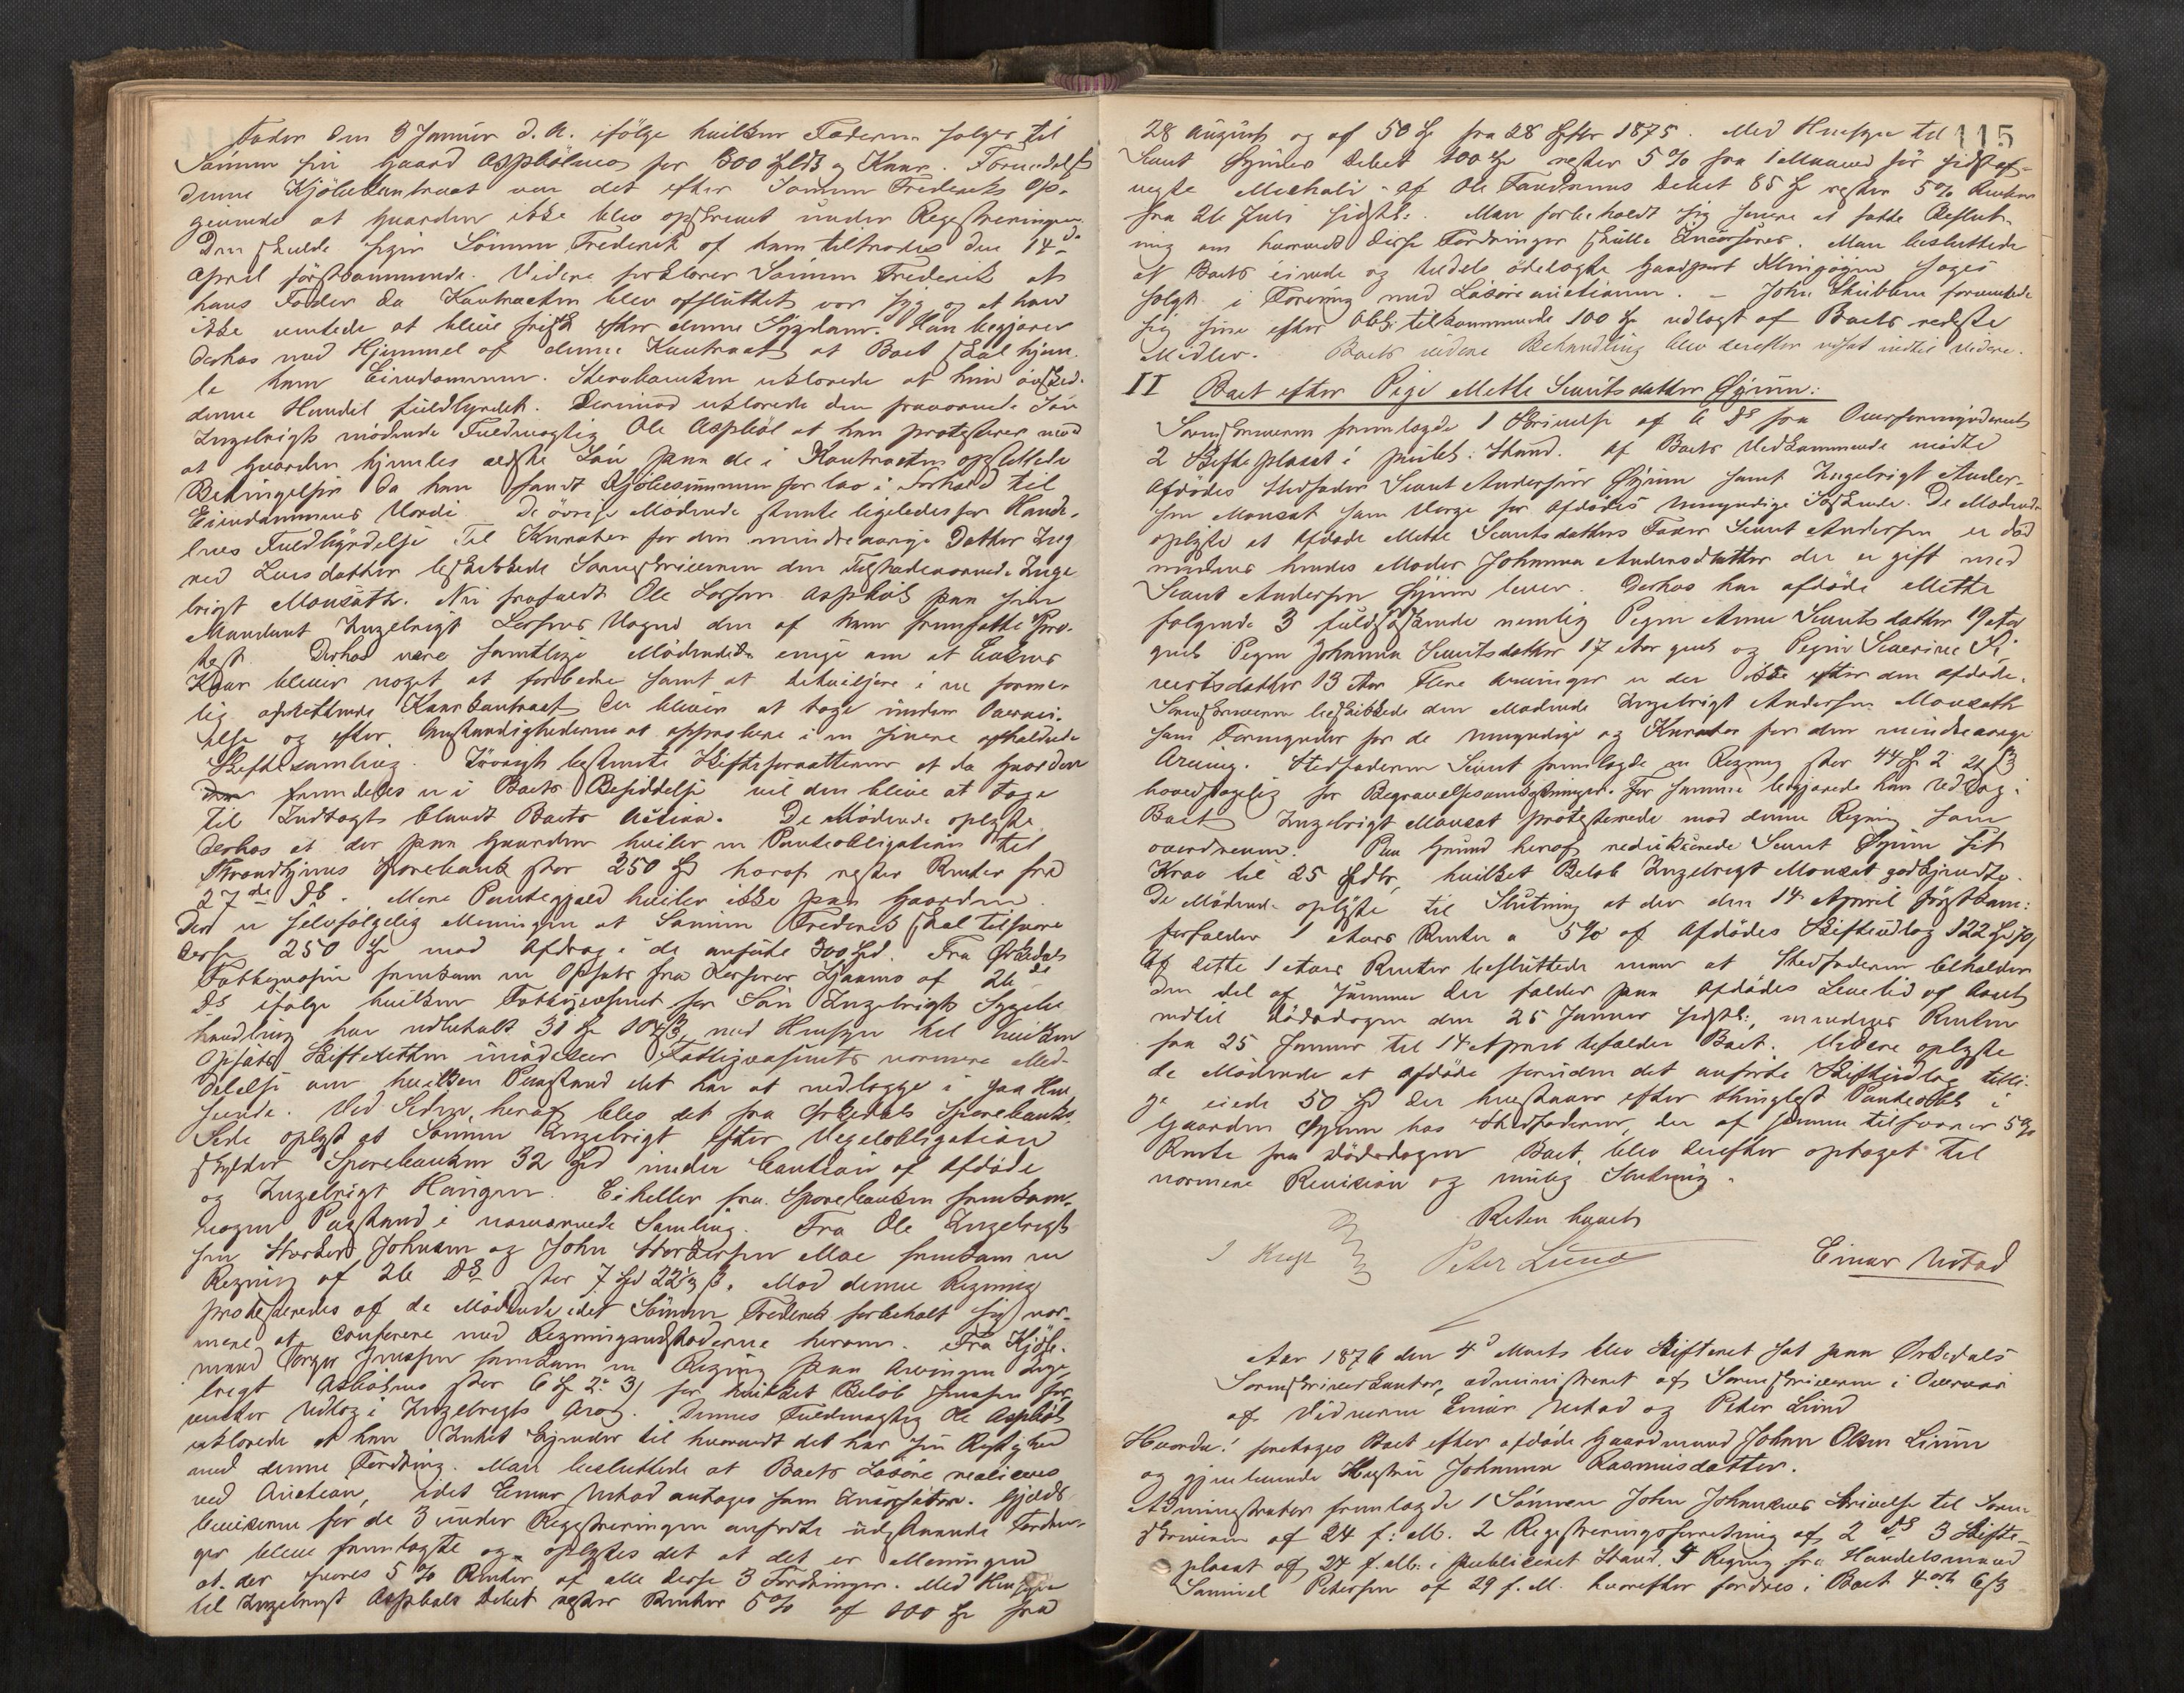 Fader den 3 Januar d. A. ifølge hvilken Faderen sælger til
Sønnen sin Gaard Asphølmo for 300 Spd og Kaar.
denne Kjøbekontract var det efter Sønnen Frederiks Op-
givende at Gaarden ikke blev opskrevet under Registreringen.
Den skulde siger Sønnen Frederik af ham tiltrædes den 14de
April førstkommende. Videre forklarer Sønnen Frederik at
hans Fader da Kontracten blev afsluttet var syg og at han
ikke ventede at blive frisk efter denne Sygdom. Han begjærer
derhos med Hjemmel af denne Kontract at Boet skal hjem-
le ham Eiendommen. Enkebarken erklærede at hun ønsked
denne Handel fuldbyrdet. Derimod erklærede den fraværende Søn
Ingebrigts mødende Fuldmægtig Ole Asphøl at han protesterer mod
at Gaarden hjemles ældste Søn paa de i Kontracten opstillede
Betingelser da han fandt Kjøbesummen for lav i Forhold til
Eiendommens Værdi. De øvrige Mødende stemte ligeledes for Hande-
lens Fuldbyrdelse. Til Kurator for den mindreaarige Datter Ing
red Larsdatter beskikkede Sorenskriveren den Tilstedeværende Inge
brigt Monsæth. Nu frafaldt Ole Larsen Asphøl paa sin
Mandant Ingebrigt Larsens Vegne den af ham fremsatte Pro-
test. Derhos vare samtlige Mødende enige om at Enkens
Kaar bliver noget at forbedre samt at
lig oprettende Kaarkontract der bliver at tage under Overvei-
else og efter Omstændighederne at approbere i en senere afholdende
Skiftesamling. Iøvrigt bestemte Skifteforvalteren at da Gaarden
fremdeles er i Boets Besiddelse vil den blive at tage
til Indtægt blandt Boets Activa. De Mødende oplyste
derhos at der paa Gaarden hviler en Panteobligation til
Trondhjems Sparebank stor 250 Spd hvoraf rester Renter fra
27de Ds. Mere Pantegjæld hviler ikke paa Gaarden.
Det er selvfølgelig Meningen at Sønnen Frederik skal tilsvare
disse 250 Spd mod Afdrag i de anførte 300 Spd. Fra Ørkedals
Fattigvæsen fremkom en Opsats fra Kasserer Hjaamo af 26de
Ds ifølge hvilken Fattigvæsenet for Søn Ingebrigts Sygebe
handling har udbetalt 31 Spd 104 β, med Hensyn til hvilken
Opsats Skifteretten imødeser Fattigvæsenets nærmere Med-
delelse om hvilken Paastand det har at nedlægge i saa Hen-
seende. Ved Siden heraf blev det fra Ørkedals Sparebanks
Side oplyst at Sønnen Ingebrigt efter Vexelobligation
skylder Sparebanken 32 Spd under Caution af Afdøde
og Ingebrigt Haugen. Ei heller fra Sparebanken fremkom
nogen Paastand i nærværende Samling. Fra Ole Ingebrigt
sen Storker Johnsen og John Storkersen Moe fremkom en
Regning af 26 Ds stor 7 Spd 22½ β. Mod denne Regning
protesteredes af de Mødende idet Sønnen Frederik forbeholdt sig nær-
mere at conferere med Regningsudstederne herom. Fra Kjøb-
mand Jensen fremkom en Regning paa Arvingen Inge
brigt Asbølmo stor 6 Spd 2. 3, for hvilket Beløb Jensen for-
venter Udlæg i Ingebrigts Arv. Dennes Fuldmægtig Ole Asphøl
erklærede at han Intet kjender til hvorvidt det har sin Rigtighed
med denne Fordring. Man besluttede at Boets Løsøre realiseres
ved Auction, idet Einar Ustad antages som Incassator. Gjælds
beviserne for de 3 under Registreringen anførte udestaaende Fordrin-
ger bleve fremlagte og oplystes det at det er Meningen
at der svares 5 % Renter af alle disse 3 Fordringer. Med Hensyn
til Ingebrigt Asphøls Debet rester Renter 5% af 100 Spd fra
115
28 August og af 50 Spd fra 28 Septbr 1875. Med Hensyn til
Sivert Øyums Debet 100 Spd rester 5 % fra 1 Maaned før sidstaf-
vegte Mechali. af Ole Sandmoens Debet 85 Spd rester 5% Renter
fra 26 Juli sidstl. Man forbeholdt sig senere at fatte Beslut-
ning om hvorvidt disse Fordringer skulle Incasseres. Man besluttede
at Boets eiende og tildels ødelagte Gaardpart Klingøyen søges
solgt i Forening med Løsøreauctionen. – John Skubben forventede
sig sine efter Obl: tilkommende 100 Spd udlagt af Boets redeste
Midler. Boets videre Behandling blev derefter udsat indtil videre.
II Boet efter Pige Mette Sivertsdatter Øyum:
Sorenskriveren fremlagde 1 Skrivelse af 6 Ds fra Overformynderiet
2 Skifteplacat i publ: Stand. Af Boets Vedkommende mødte
Afdødes Stedfader Sivert Andersen Øyum samt Ingebrigt Ander-
sen Monsæt som Værge for Afdødes umyndige Søskende. De Mødende
oplyste at Afdøde Mette Sivertsdatters Fader Sivert Andersen er død
medens hendes Moder Johanna Andersdatter der er gift med
Sivert Andersen Øyum lever. Derhos har afdøde Mette
følgende 3 fuldsøskende nemlig Pigen Anne Sivertsdatter 19 Aar
gml Pigen Johanna Sivertsdatter 17 Aar gml og Pigen Severine Si
vertsdatter 13 Aar. Flere Arvinger er der ikke efter den afdøde.
Sorenskriveren beskikkede den Mødende Ingebrigt Andersen Monsæth
som Formynder for de umyndige og Kurator for den mindreaarige
Arving. Stedfaderen Sivert fremlagde en Regning stor 44 Spd 2 21 β
hovedsagelig for Begravelsesomkostninger. For samme begjærede han Udlæg i
Boet. Ingebrigt Monsæt protesterede mod denne Regning som
overdreven. Paa Grund heraf reducerede Sivert Øyum sit
Krav til 25 Spdlr, hvilket Beløb Ingebrigt Monsæt godkjendte.
De Mødende oplyste til Slutning at der den 14 April førstkom:
forfalder 1 Aars Renter a 5% af Afdødes Skifteudlæg 122 Spd
Af dette 1 Aars Renter besluttede man at Stedfaderen beholder
den Del af Summen der falder paa Afdødes Levetid af Aaret
indtil Dødsdagen den 25 Januar sidstl:, medens Renten
fra 25 Januar til 14 April tilfalder Boet. Videre oplyste
de Mødende at afdøde foruden det anførte Skifteudlæg tilli-
ge eiede 50 Spd der henstaar efter thinglæst Panteobl i
Gaarden Øyum hos Stedfaderen, der af samme tilsvarer 5%
Rente fra Dødsdagen. Boet blev derefter optaget til
nærmere Revision og mulig Slutning.
Retten hævet
Peter Lund
Einar Ustad
Aar 1876 den 4d Marts blev Skifteret sat paa Ørkedals
Sorenskriverkontor, administreret af Sorenskriveren i Overvær
af Vidnerne Einar Ustad og Peter Lund
Hvorda: foretoges Boet efter afdøde Gaardmand John Olsen Lium
og gjenlevende Hustru Johanna Rasmusdatter.
Administrator fremlagde 1 Sønnen John Johnsens Skrivelse til Soren-
skriveren af 24 f: M. 2 Registreringsforretning af 2 ds 3 Skifte-
placat af 24 f. M: i publiceret Stand. 4 Regning fra Handelsmand
Samuel Petersen af 29 f. M. hvorefter fordres i Boet 4 ort 6 β